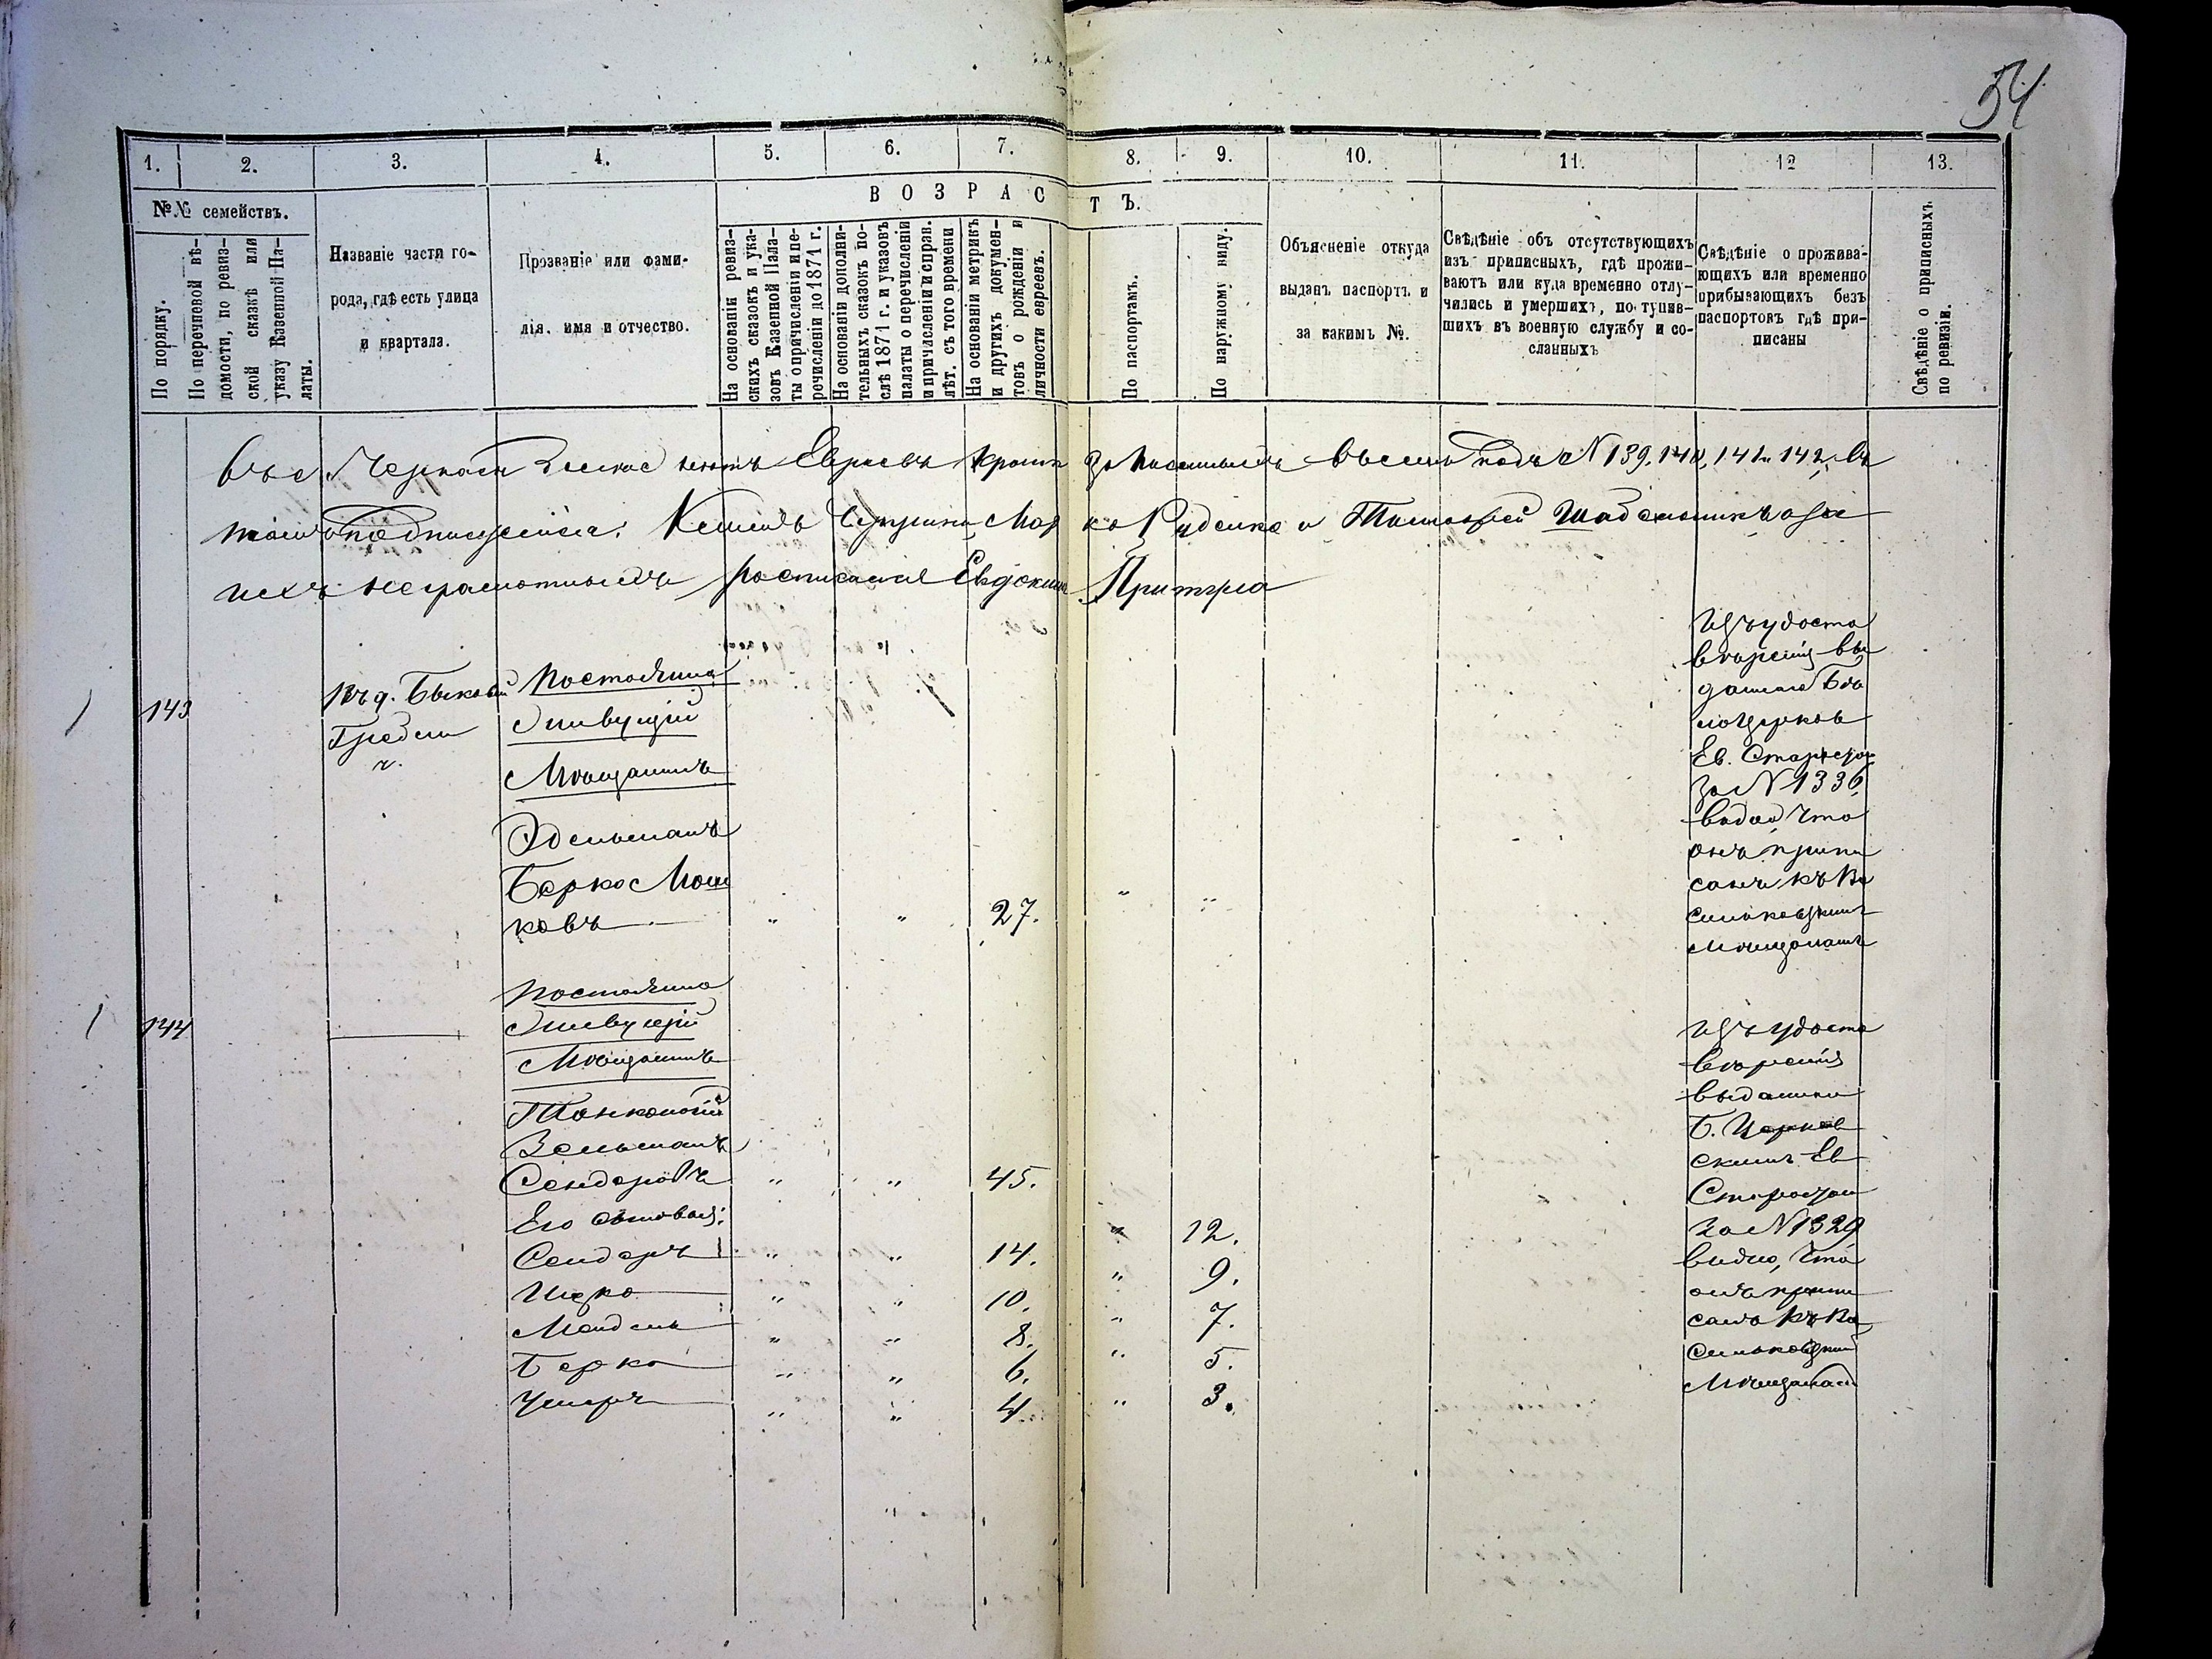 54
1. 2. 3. 4. 5. 6. 7. 8. 9. 10. 11. 12 13.
№№ семействъ.
По порядку.
По перечневой вѣ-
домости, по ревиз-
ской сказкѣ или
указу Казенной Па-
латы.
Названіе части го-
рода, гдѣ есть улица
и квартала.
Прозваніе или фами-
лія, имя и отчество.
ВОЗРАСТЪ.
На основаніи ревиз-
скихъ сказокъ и ука-
зовъ Казенной Пала-
ты о причисленіи и пе-
речисленіи до 1871 г.
На основаніи дополни-
тельныхъ сказокъ по-
слѣ 1871 г. и указовъ
палаты о перечисленіи
и причисленіи и справ.
лѣт. съ того времени
На основаніи метрикъ
и другихъ докумен-
товъ о рожденіи и
личности евреевъ.
По паспортамъ.
По наружному виду.
Объясненіе откуда
выданъ паспортъ и
за какимъ №.
Свѣдѣніе объ отсутствующихъ
изъ приписныхъ, гдѣ прожи-
ваютъ или куда временно отлу-
чились и умершихъ, поступив-
шихъ въ военную службу и со-
сланныхъ
Свѣдѣніе о прожива-
ющихъ или временно
прибывающихъ безъ
паспортовъ гдѣ при-
писаны
Свѣдѣніе о приписныхъ
по ревизіи.
Въ с. нетъ Евреевъ кроме записанныхъ въ семъ подъ № 139, 140, 141 и 142, въ
томъ подписуемся: Марко Руденко и Тимофей
ихъ неграмотныхъ росписался Евдокимъ Притула
143
Въ д. Быковой
Гребли
Постоянно
живущій
Мѣщанинъ
Эдельманъ
Берко Мош
ковъ " " 27. " "
Изъ удосто
вѣренія вы
даннаго Бѣ
лоцерков
Ев. Старостою
за № 1336,
видно, что
онъ припи
санъ къ Ва
сильковскимъ
Мѣщанамъ
144
Постоянно
живущій
Мѣщанинъ
Тонконогій
Зельманъ
Сендеровъ " " 45.
Его сыновья:
Сендеръ " " 14. " 12.
Ицко " " 10. " 9.
Мендель " " 8. " 7.
Берко " " 6. " 5.
Ушеръ " " 4. " 3.
Изъ удосто
вѣренія
выданнаго
Б. Церков
скимъ Ев
Старостою
за № 1329
видно, что
онъ припи
санъ къ Ва
сильковскимъ
Мѣщанамъ